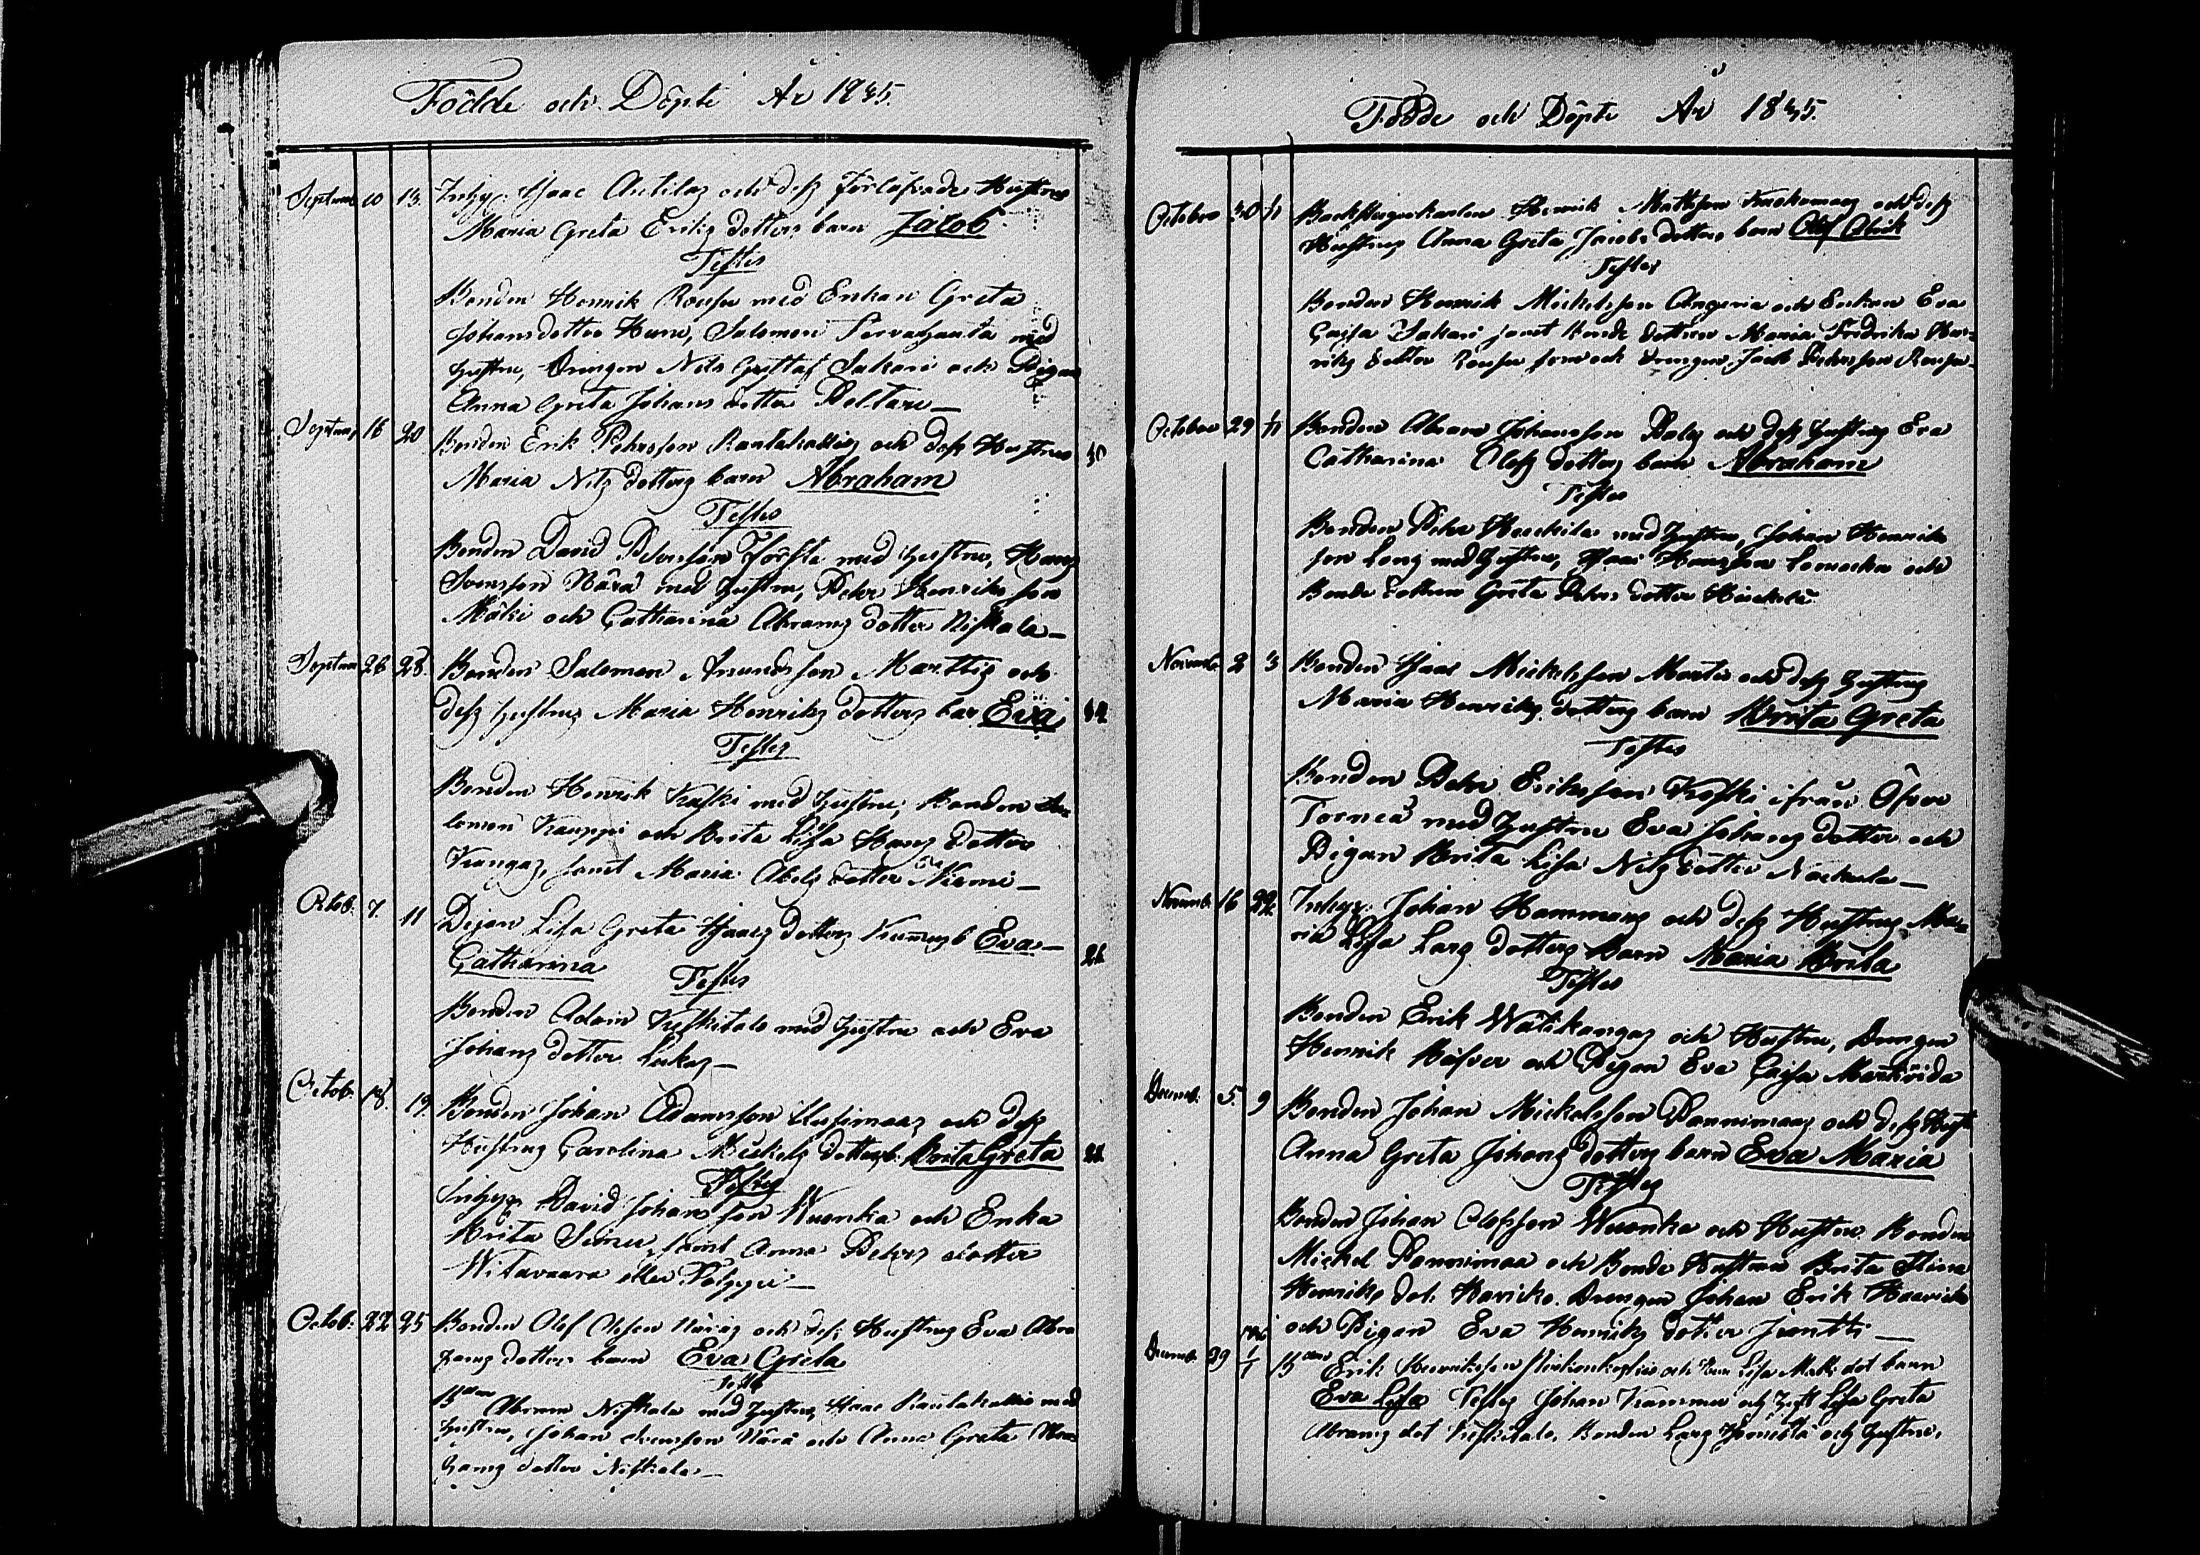 Födde och Döpte År 1835.
Septem 10 13. Inhys. Isaac Antilas och dess förlåfvade Hustrus
Maria Greta Eriks dotters barn Jacob
Testes
Bonden Henrik Rousu med Enkan Greta
Johansdotter Huru, Salomon med
hustru, Drengen Nils Gustaf Sakari och Pigan
Anna Greta Johans dotter Peltari
Septem 16 20 Bonden Erik Pehrsson Rantakallios och dess Hustrus
Maria Nils dotters barn Abraham
Testes
Bonden David Pehrsson Förste med hustru, Hans
Svensson Närä med hustru, Pehr Henriksson
Mäki och Catharina Abrams dotter Niskala
Septem 26 28. Bonden Salomon Amundsson Marttis och
dess hustrus Maria Henriks dotters bar Eva
Testes
Bonden Henrik Kuski med hustru, Bonden Sa
lomon Kauppi och Brita Lisa Hans dotter
Kangas, samt Maria Abels dotter Niemi
Octob. 7. 11 Pigan Lisa Greta Isaacs dotters b Eva
Catharina
Testes
Bonden Adam Keskitalo med hustru och Eva
Johans dotter Lukas
Octob. 18. 19. Bonden Johan Adamsson Uusimaas och dess
Hustrus Carolina Mickels dotters b. Brita Greta
Testes
Inhys David Johansson Wuonka och Enka
Brita samt Anna Pehrs dotter
Witavaara eller
Octob. 22 25 Bonden Olof Olsson Näräs och dess Hustrus Eva Abra
hams dotters barn Eva Greta
Testes
Bden Abram Niskala med hustru, Isaac Rautakallio med
hustru, Johan Svensson Närä och Anna Greta Abra
hams dotter Niskala
Födde och Döpte År 1835.
Octobr 30 1/11 Henrik Mattsson och dess
Hustrus Anna Greta Jacobs dotters barn Olof Abick
Testes
Bonden Henrik Mickelsson Angeria och Enkan Eva
Cajsa Sakari samt Bonde dottren Maria Fredrika Hen
riks dotter Rousu och Drengen Jacob Pehrsson Rousu
Octobr 29 1/11 Bonden Abram Johansson Palos och dess hustrus Eva
Catharina Olofs dotters barn Abraham
Testes
Bonden Pehr Heickilä med hustru, Johan Henriks
son Lang med hustru, Isaac Hansson och
Bonde dottren Greta Pehrs dotter Heickilä
Novemb. 2 3 Bonden Isaac Mickelsson Martis och dess hustrus
Maria Henriks dotters barn Brita Greta
Testes
Bonden Pehr Eriksson Koski ifrån Öfver
Torneå med hustru Eva Johans dotter och
Pigan Brita Lisa Nils dotter
Novemb. 16 22. Inhys. Johan Hammars och dess Hustrus Ma
ria Lisa Lars dotters Barn Maria Brita
Testes
Bonden Erik Watikangas och Hustru, Drengen
Henrik och Pigan Eva Cajsa
Decemb. 5 9 Bonden Johan Mickelsson Pannimaas och dess Hust
Anna Greta Johans dotters barn Eva Maria
Testes
Bonden Johan Olofsson Wuonka och Hustru. Bonden
Michel Pannimaa och Bonde Hustrun Brita Stina
Henriks dot. Haricko. Drengen Johan Erik
och Pigan Eva Henriks dotter Juontti
Decemb. 29 1/1 Bden Erik Henriksson och Lisa Matts dot barn
Eva Lisa Testes Johan och hust Lisa Greta
Abrams dot Keskitalo, Bonden Lars och hustru.